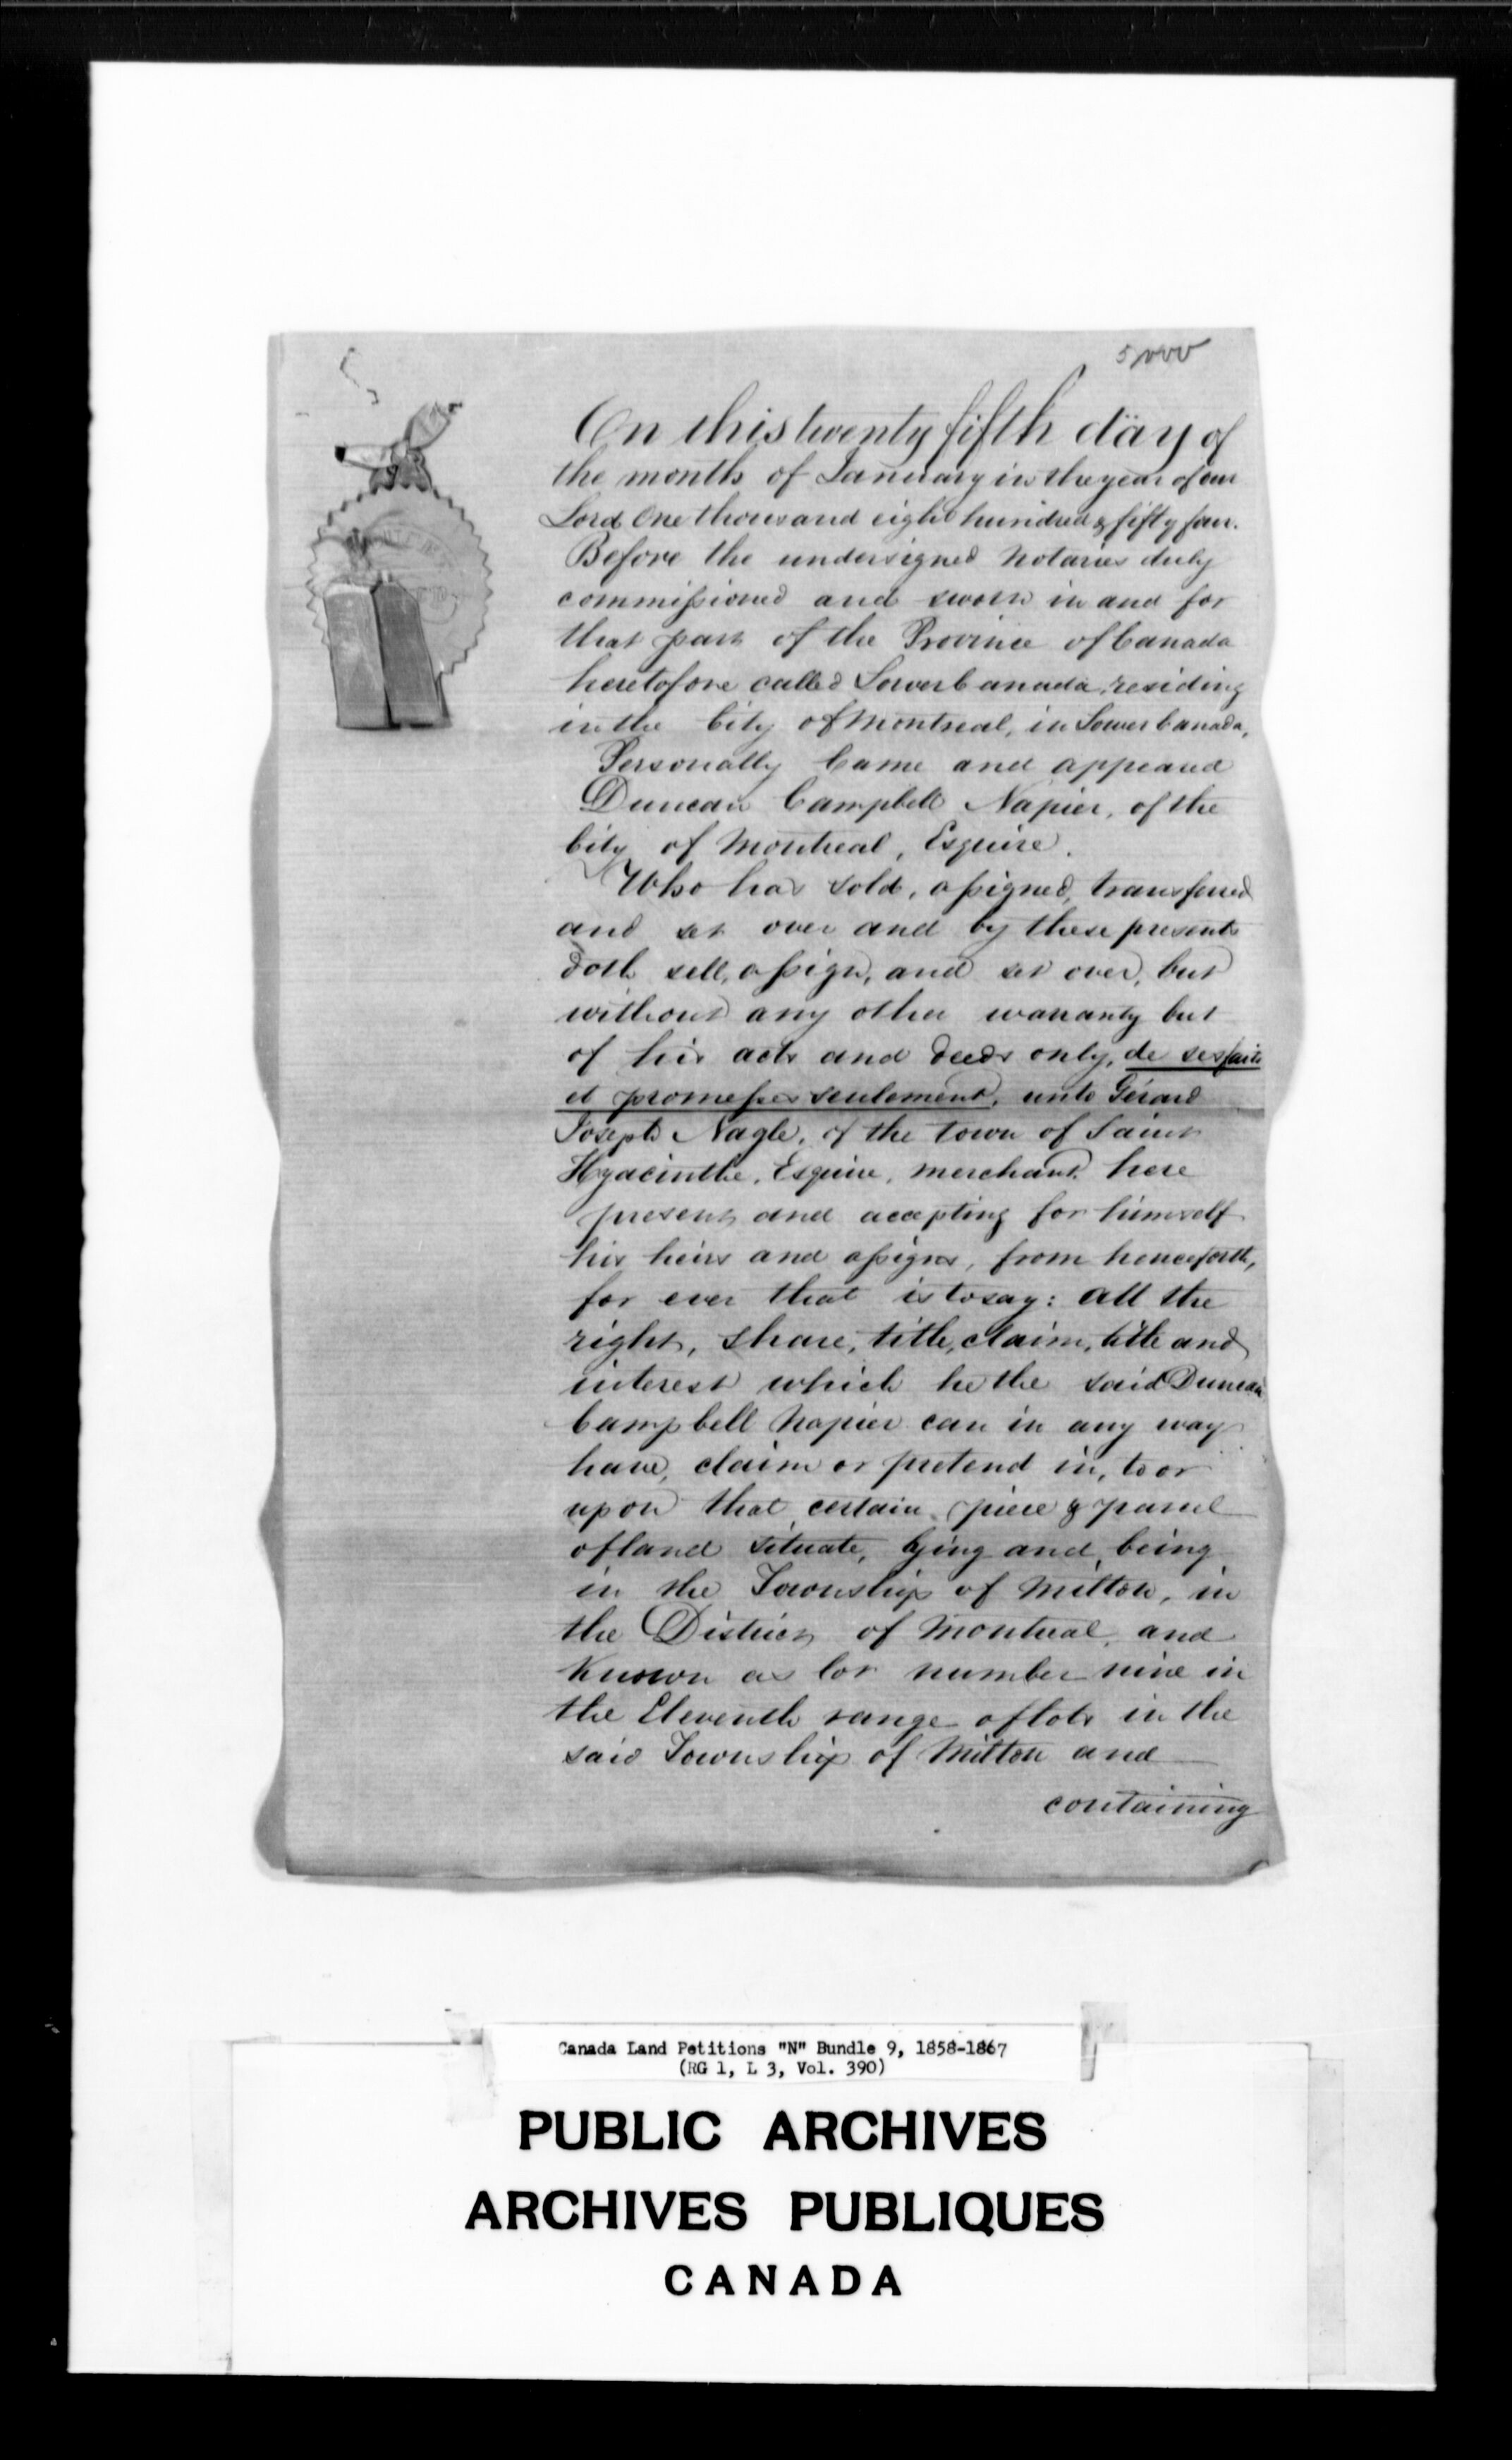 On this twenty fifth day of
the month of January in the year of our
Lord One thousand eight hundred & fifty four.
Before the undersigned Notaries duly
commissioned and sworn in and for
that part of the Province of Canada
heretofore called Lower Canada, residing
in the City of Montreal, in Lower Canada,
Personally Came and appeared
Duncan Campbell Napier, of the
City of Montreal, Esquire.
Who has sold, assigned, transferred
and set over and by these presents
doth sell, assign, and set over, but
without any other warranty but
of his acts and deeds only, de ses faits
et promesses seulement, unto Gérard
Joseph Nagle, of the town of Saint
Hyacinthe, Esquire, merchant, here
present and accepting for himself
his heirs and assigns, from henceforth,
for ever that is to say: all the
right, share, title, claim, title and
interest which he the said Duncan
Campbell Napier can in any way
have, claim or pretend in, to or
upon that certain piece & parcel
of land situate, lying and being
in the Township of Milton, in
the District of Montreal, and
Known as lot number nine in
the Eleventh range of lots in the
said Township of Milton and
containing
Canada Land Petitions "N" Bundle 9, 1858-1867
(RG 1, L 3, Vol. 390)
PUBLIC ARCHIVES
ARCHIVES PUBLIQUES
CANADA